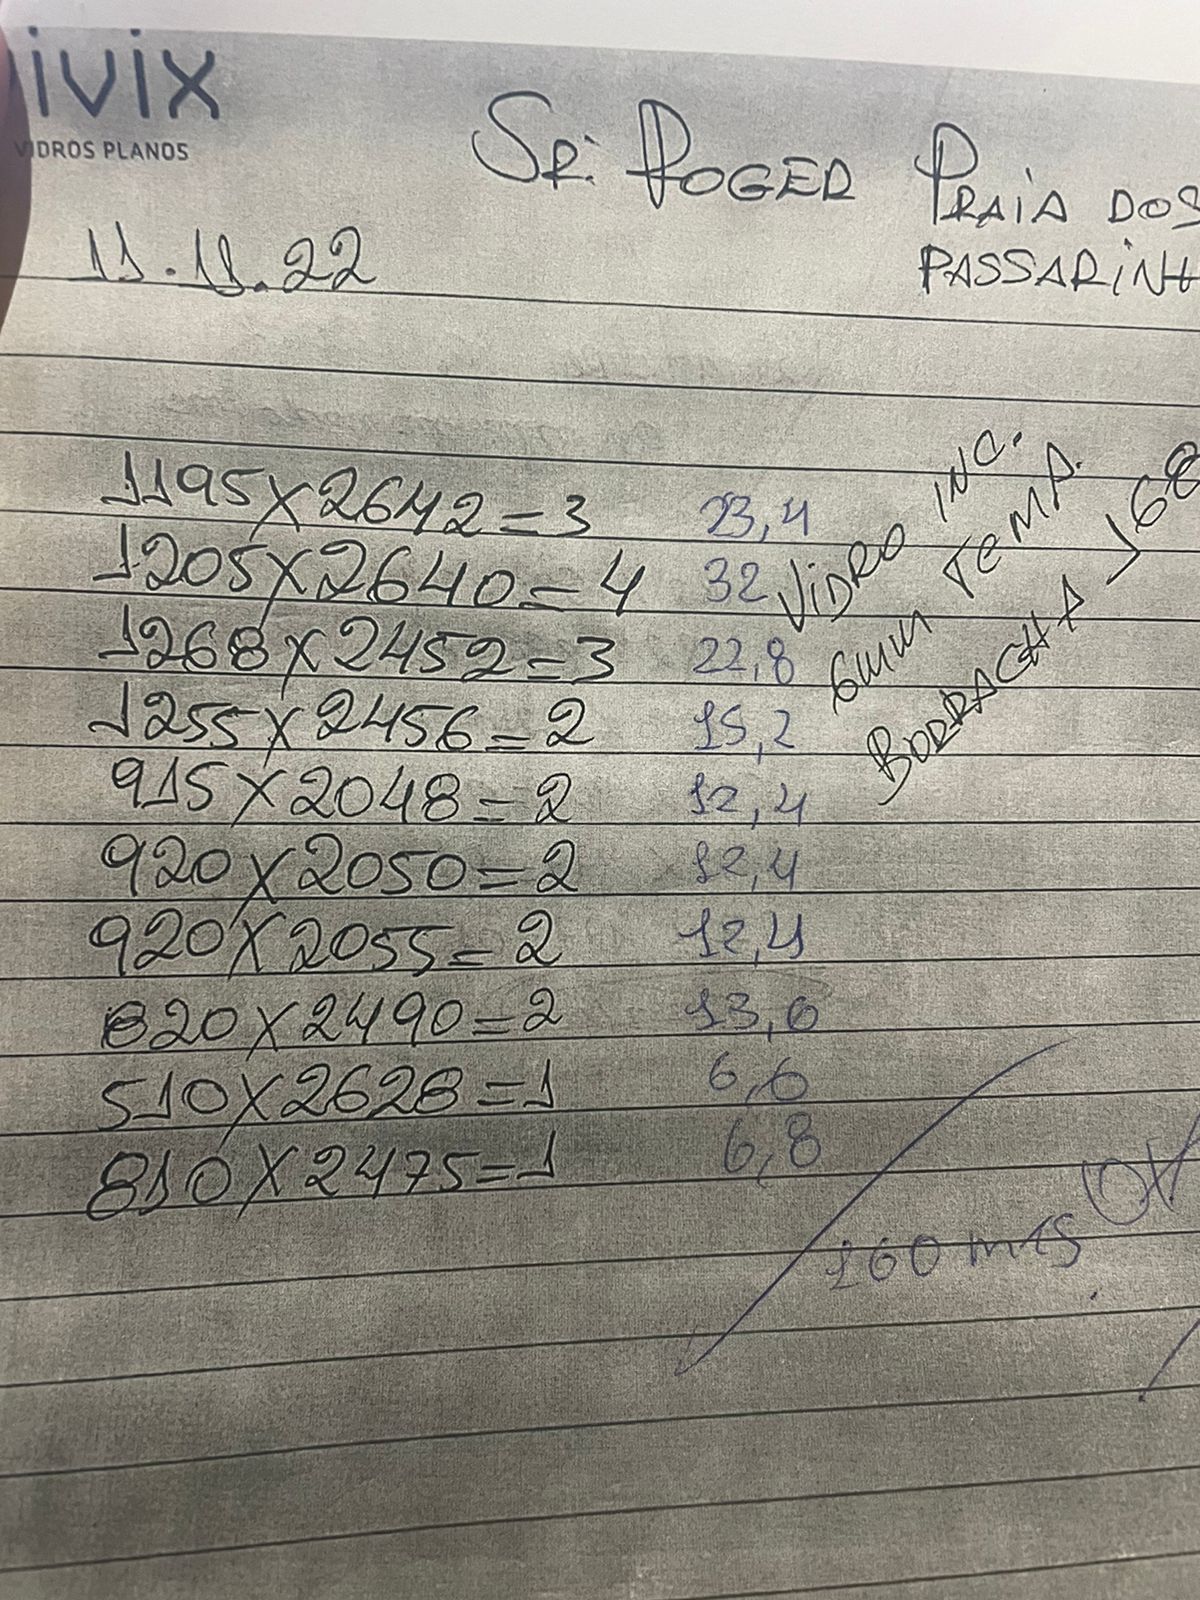 ivix
VIDROS PLANOS
SR. ROGER PRAIA DOS
PASSARINH
11.11.22
1195X2642=3 23,4
1205X2640=4 32
1268X2452=3 22,8
1255X2456=2 15,2
915X2048=2 12,4
920X2050=2 12,4
920X2055=2 12,4
820X2490=2 13,6
510X2628=1 6,6
810X2475=1 6,8
VIDRO INC.
6MM TEMP.
BORRACHA 168
160 mts OK